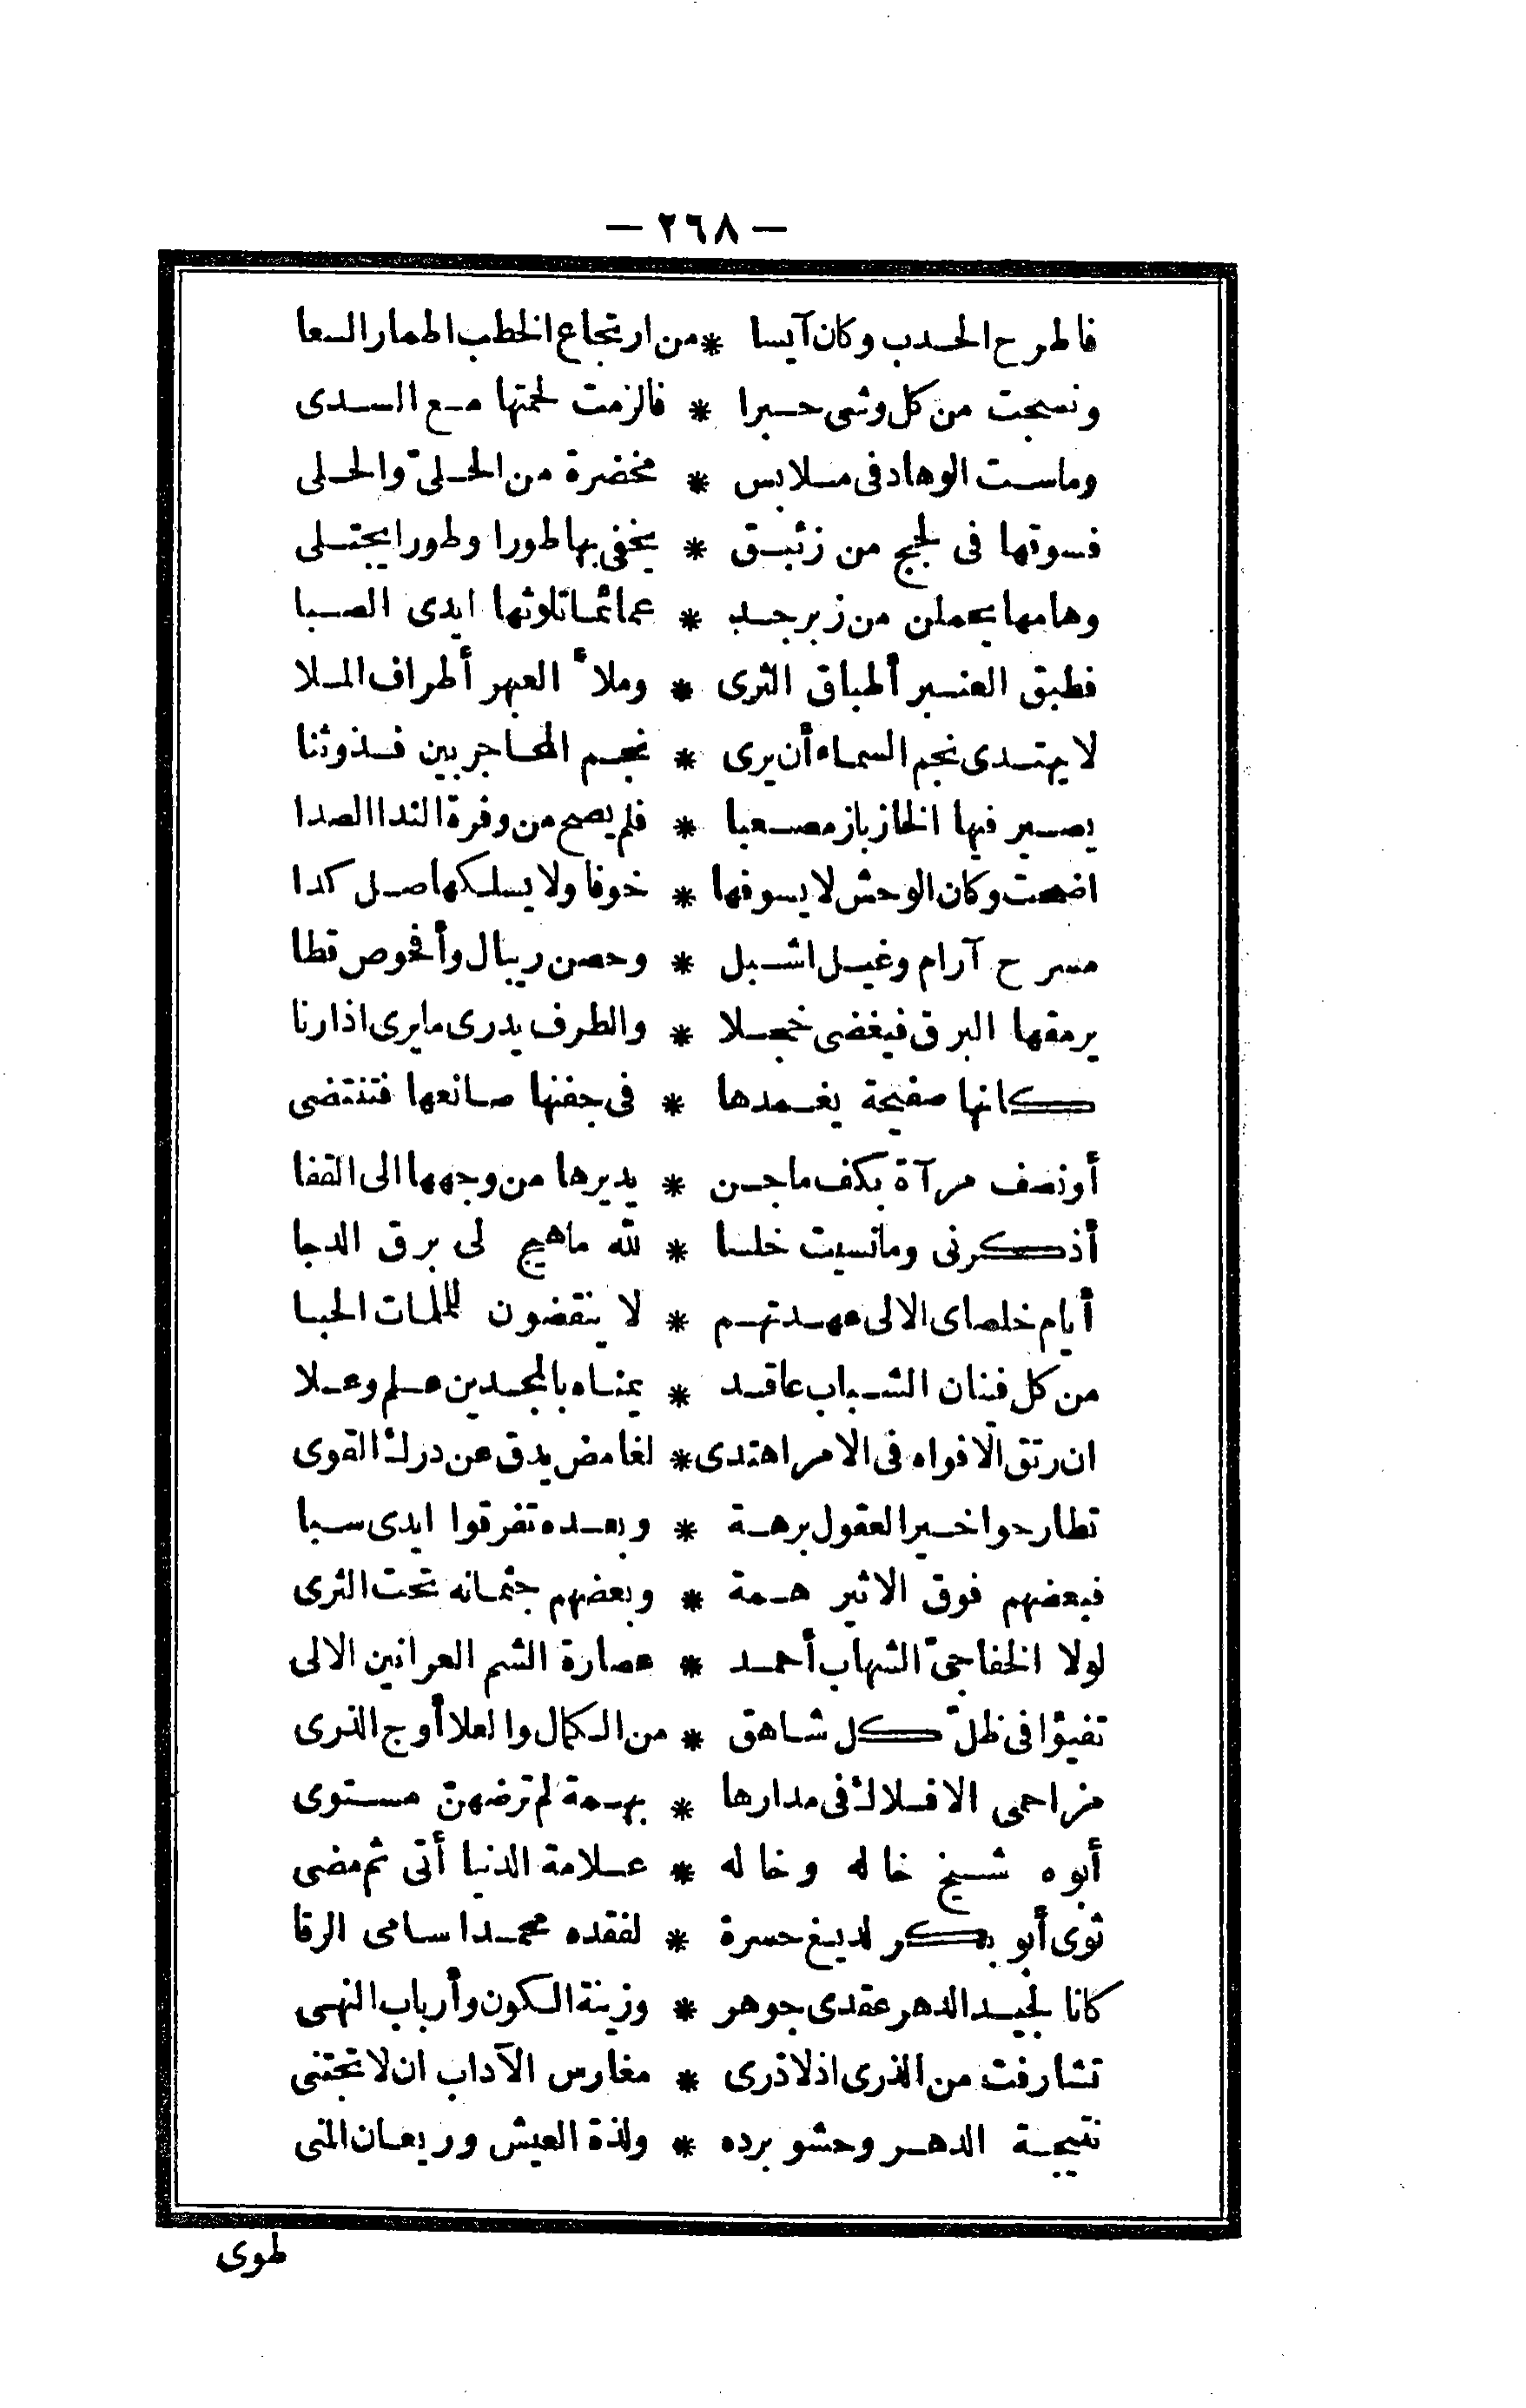 — ٢٦٨ —
فاطرح الجدب وكان آيسا * من ارتجاع الخطب اطمار السعا
ونسجت من كل وشى حبرا * فالزمت لحمتها مع السدى
وماست الوهاد فى ملابس * مخضرة من الحلىّ والحلى
فسوقها فى لجج من زئبق * يخفى بها طورا وطورا يجتلى
وهامها يحملن من زبرجد * عمائما تلوثها ايدى الصبا
فطبق العنبر أطباق الثرى * وملأ العبهر أطراف الملا
لا يهتدى نجم السماء أن يرى * نجم المحاجر بين فذوثنا
يصير فيها الخازباز مصعبا * فلم يصح من وفرة الندا الصدا
اضحت وكان الوحش لا يسوفها * خوفا ولا يسلكها صل كدا
مسرح آرام وغيل اشبل * وحصن ريبال وأفحوص قطا
يرمقها البرق فيغضى خجلا * والطرف يدرى مايرى اذا رنا
كانها صفيحة يغمدها * فى جفنها صانعها فتنتضى
أو نصف مرآة بكف ماجن * يديرها من وجهها الى القفا
أذكرنى ومانسيت خلسا * لله ماهيج لى برق الدجا
أيام خلصاى الالى عهدتهم * لا ينقضون للملمات الحبا
من كل فينان الشباب عاقد * يمناه بالمجدين علم وعلا
ان رتق الافواه فى الامر اهتدى * لغامض يدق عن درك القوى
تطارحوا خير العقول برهة * وبعده تفرقوا ايدى سبا
فبعضهم فوق الاثير همة * وبعضهم جثمانه تحت الثرى
لولا الخفاجىّ الشهاب أحمد * عصارة الشم العرانين الالى
تفيؤا فى ظلّ كل شاهق * من الكمال والعلا أوج الذرى
مزاحمى الافلاك فى مدارها * بهمة لم ترضهنّ مستوى
أبوه شيخ خاله وخاله * علامة الدنيا أتى ثم مضى
ثوى أبو بكر لديغ حسرة * لفقده محمدا سامى الرقا
كانا لجيد الدهر عقدى جوهر * وزينة الكون وأرباب النهى
تشارفت من الذرى اذلا ذرى * مغارس الآداب ان لا تجتنى
نتيجة الدهر وحشو برده * ولذة العيش وريعان المنى
طوى